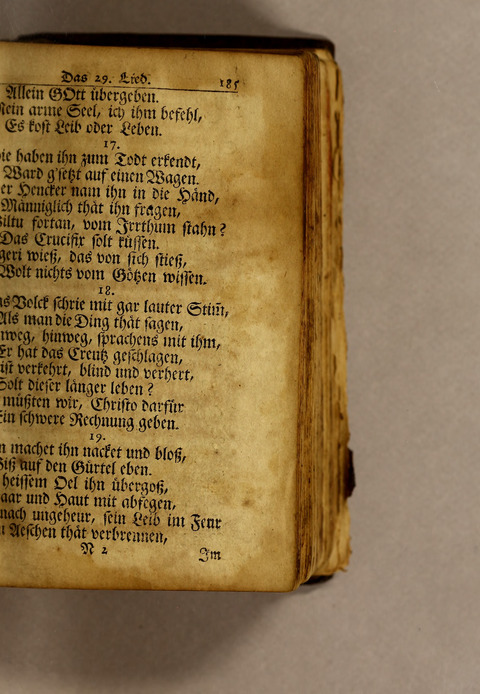 Das 29. Lied. 185
Allein GOtt übergeben.
Mein arme Seel, ich ihm befehl,
Es kost Leib oder Leben.
17.
haben ihn zum Todt erkendt,
Ward g'setzt auf einen Wagen.
Hencker nam ihn in die Händ,
Männiglich thät ihn fragen,
fortan, vom Irrthum stahn?
Das Crucifix solt küssen.
wieß, das von sich stieß,
Wolt nichts vom Götzen wissen.
18.
Volck schrie mit gar lauter Stim̃,
Als man die Ding thät sagen,
hinweg, sprachens mit ihm,
Er hat das Creutz geschlagen,
verkehrt, blind und verhert,
Solt dieser länger leben?
müßten wir, Christo darfür
Ein schwere Rechnung geben.
19.
machet ihn nacket und bloß,
Biß auf den Gürtel eben.
heissem Oel ihn übergoß,
und Haut mit abfegen,
nach ungeheur, sein Leib im Feur
Aeschen thät verbrennen,
N 2 Im